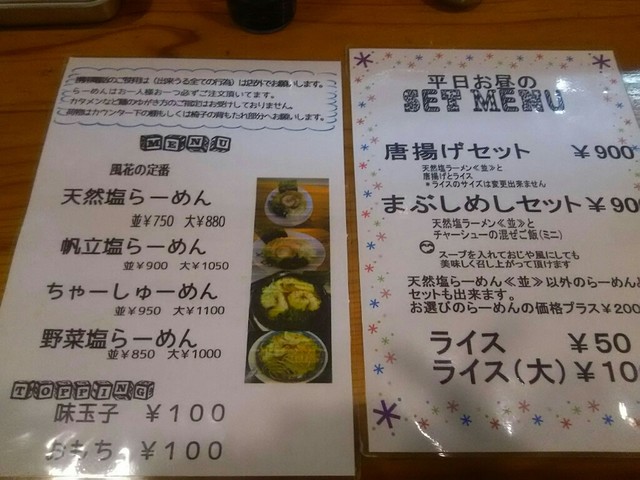 携帯電話のご使用は(出来うる全ての行為)は店外でお願いします。
らーめんはお一人様お一つ必ずご注文頂いてます。
カタメンなど麺のゆがき方のご指定はお受けしておりません。
荷物はカウンター下の棚もしくは椅子の背もたれ部分へお願いします。
MENU
風花の定番
天然塩らーめん
並¥750 大¥880
帆立塩らーめん
並¥900 大¥1050
ちゃーしゅーめん
並¥950 大¥1100
野菜塩らーめん
並¥850 大¥1000
TOPPING
味玉子 ¥100
おもち ¥100
平日お昼の
SET MENU
唐揚げセット ¥900
天然塩ラーメン≪並≫と
唐揚げとライス
*ライスのサイズは変更出来ません
まぶしめしセット ¥900
天然塩ラーメン≪並≫と
チャーシューの混ぜご飯(ミニ)
スープを入れておじや風にしても
美味しく召し上がって頂けます
天然塩らーめん≪並≫以外のらーめんと
セットも出来ます。
お選びのらーめんの価格プラス¥200
ライス ¥50
ライス(大) ¥100